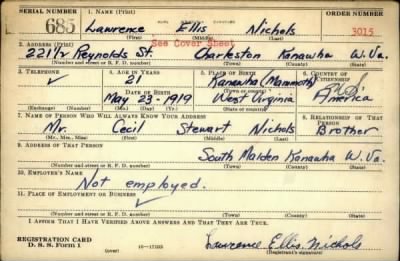 SERIAL NUMBER 1. NAME (Print) ORDER NUMBER
685 Lawrence Ellis Nichols 3015
(First) (Middle) (Last)
See Cover Sheet
2. ADDRESS (Print)
221½ Reynolds St. Charleston Kanawha W.Va.
(Number and street or R. F. D. number) (Town) (County) (State)
3. TELEPHONE 4. AGE IN YEARS 5. PLACE OF BIRTH 6. COUNTRY OF CITIZENSHIP
✓ 21 Kanawha (Mammoth)
DATE OF BIRTH (Town or county)
May 23-1919 West Virginia America
(Exchange) (Number) (Mo.) (Day) (Yr.) (State or country)
7. NAME OF PERSON WHO WILL ALWAYS KNOW YOUR ADDRESS 8. RELATIONSHIP OF THAT PERSON
Mr. Cecil Stewart Nichols Brother
(Mr., Mrs., Miss) (First) (Middle) (Last)
9. ADDRESS OF THAT PERSON
South Malden Kanawha W.Va.
(Number and street or R. F. D. number) (Town) (County) (State)
10. EMPLOYER'S NAME
Not employed.
11. PLACE OF EMPLOYMENT OR BUSINESS
✓
(Number and street or R. F. D. number) (Town) (County) (State)
I AFFIRM THAT I HAVE VERIFIED ABOVE ANSWERS AND THAT THEY ARE TRUE.
REGISTRATION CARD
D. S. S. Form 1 16-17105 Lawrence Ellis Nichols
(Registrant's signature)